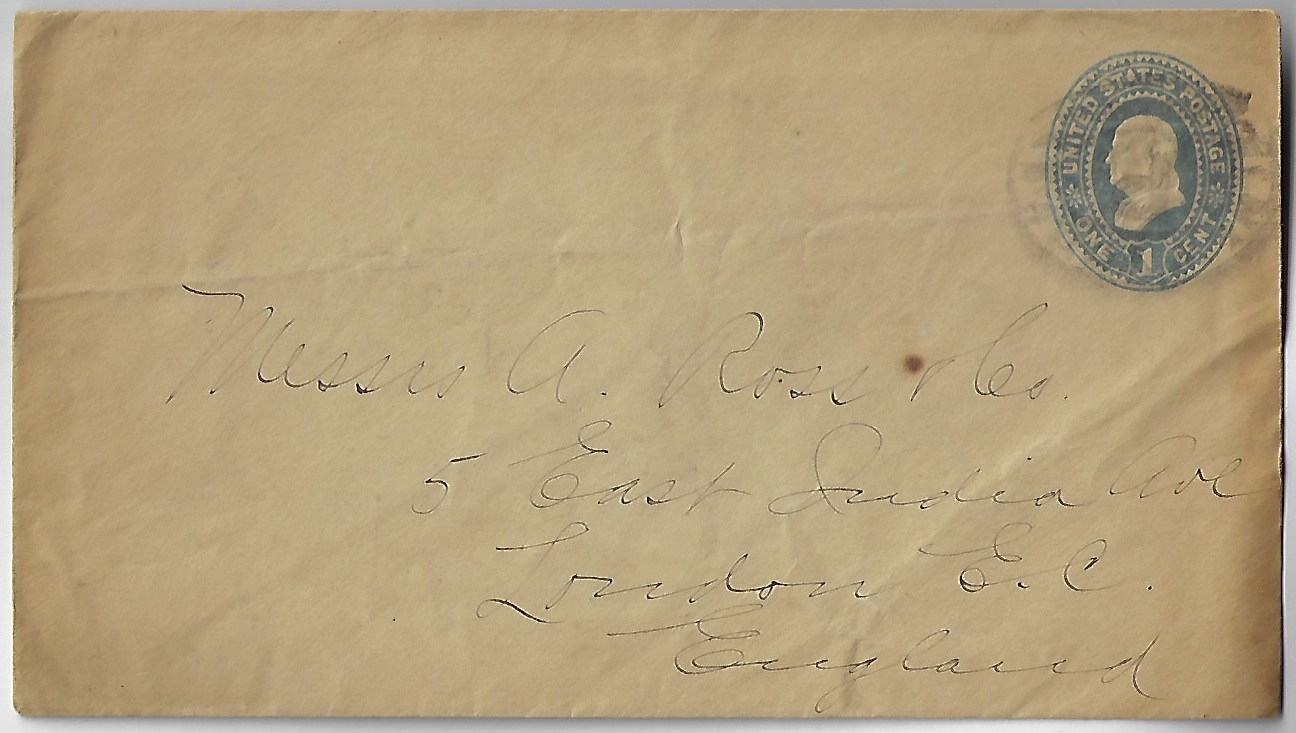 UNITED STATES POSTAGE
ONE 1 CENT
Messrs A. Ross & Co.
5 East India Ave
London E.C.
England